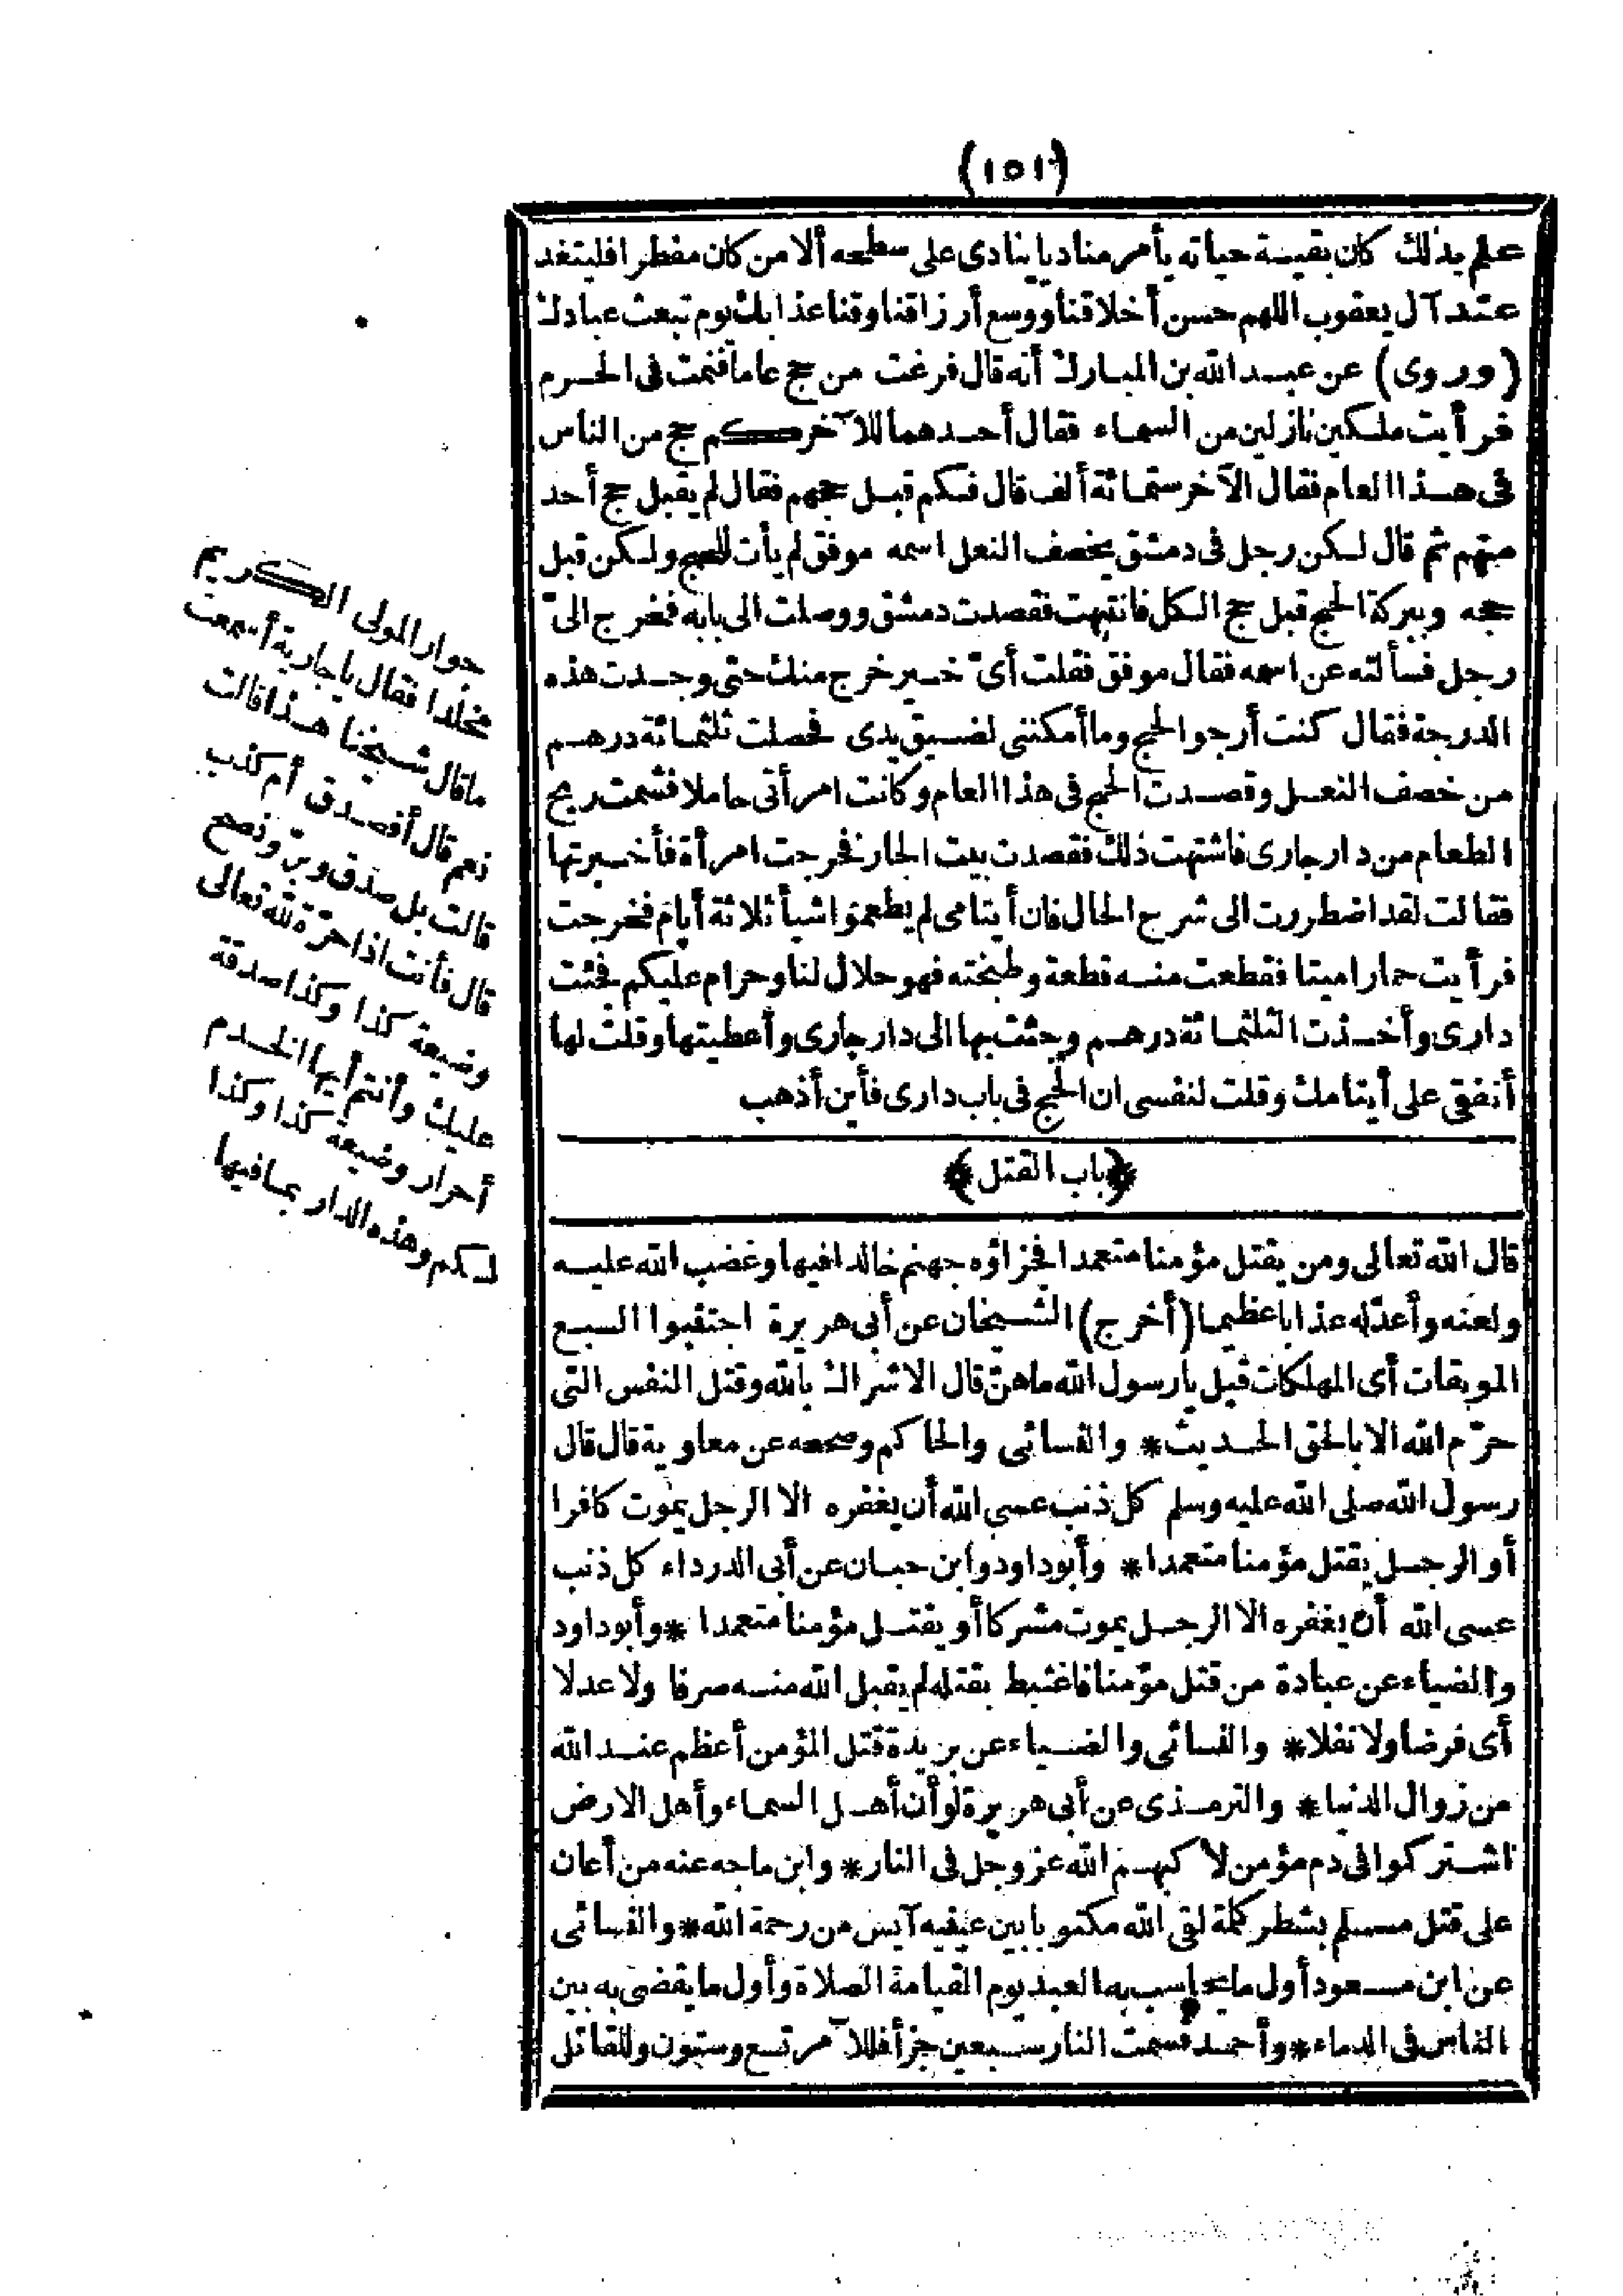 (١٥١)
علم بذلك كان بقيسة حياته يأمر مناديا ينادى على سطحه ألا من كان مفطرا فليتغد
عند آل يعقوب اللهم حسن أخلاقنا ووسع أرزاقنا وقنا عذابك يوم تبعث عبادك
(وروى) عن عبد الله بن المبارك أنه قال فرغت من حج عاما فنمت فى الحرم
فرأيت ملكين نازلين من السماء فقال أحدهما للآخر كم حج من الناس
فى هذا العام فقال الآخر ستمائة ألف قال فكم قبل حجهم فقال لم يقبل حج أحد
منهم ثم قال لكن رجل فى دمشق يخصف النعل اسمه موفق لم يأت للحج ولكن قبل
حجه وببركة الحج قبل حج الكل فانتبهت فقصدت دمشق ووصلت الى بابه فخرج الىّ
رجل فسألته عن اسمه فقال موفق فقلت أىّ خير خرج منك حتى وجدت هذه
الدرجة فقال كنت أرجو الحج وما أمكننى لضيق يدى فحصلت ثلثمائة درهم
من خصف النعل وقصدت الحج فى هذا العام وكانت امرأتى حاملا فشمت ريح
الطعام من دار جارى فاشتهت ذلك فقصدت بيت الجار فخرجت امرأة فأخبرتها
فقالت لقد اضطررت الى شرح الحال فان أيتامى لم يطعموا شيأ ثلاثة أيام فخرجت
فرأيت حمارا ميتا فقطعت منه قطعة وطبخته فهو حلال لنا وحرام عليكم فجئت
دارى وأخذت الثلثمائة درهم وجئت بها الى دار جارى وأعطيتها وقلت لها
أنفقى على أيتامك وقلت لنفسى ان الحج فى باب دارى فأين أذهب
﴿باب القتل﴾
قال الله تعالى ومن يقتل مؤمنا متعمدا فجزاؤه جهنم خالدا فيها وغضب الله عليه
ولعنه وأعدّ له عذابا عظيما (أخرج) الشيخان عن أبى هريرة اجتنبوا السبع
الموبقات أى المهلكات قيل يا رسول الله ما هنّ قال الاشراك بالله وقتل النفس التى
حرّم الله الا بالحق الحديث * والنسائى والحاكم وصححه عن معاوية قال قال
رسول الله صلى الله عليه وسلم كل ذنب عسى الله أن يغفره الا الرجل يموت كافرا
أو الرجل يقتل مؤمنا متعمدا * وأبو داود وابن حبان عن أبى الدرداء كل ذنب
عسى الله أن يغفره الا الرجل يموت مشركا أو يقتل مؤمنا متعمدا * وأبو داود
والضياء عن عبادة من قتل مؤمنا فاغتبط بقتله لم يقبل الله منه صرفا ولا عدلا
أى فرضا ولا نفلا * والنسائى والضياء عن بريدة قتل المؤمن أعظم عند الله
من زوال الدنيا * والترمذى عن أبى هريرة لو أن أهل السماء وأهل الارض
اشتركوا فى دم مؤمن لأكبهم الله عز وجل فى النار * وابن ماجه عنه من أعان
على قتل مسلم بشطر كلمة لقى الله مكتوبا بين عينيه آيس من رحمة الله * والنسائى
عن ابن مسعود أول ما يحاسب به العبد يوم القيامة الصلاة وأول ما يقضى به بين
الناس فى الدماء * وأحمد قسمت النار سبعين جزأ فللآمر تسع وستون وللقاتل
جوار المولى الكريم
مخلدا فقال يا جارية أسمعت
ما قال شيخنا هذا قالت
نعم قال أفصدق أم كذب
قالت بل صدق وبرّ ونصح
قال فأنت اذا حرّة لله تعالى
وضيعة كذا وكذا صدقة
عليك وأنتم أيها الخدم
أحرار وضيعة كذا وكذا
لكم وهذه الدار بما فيها